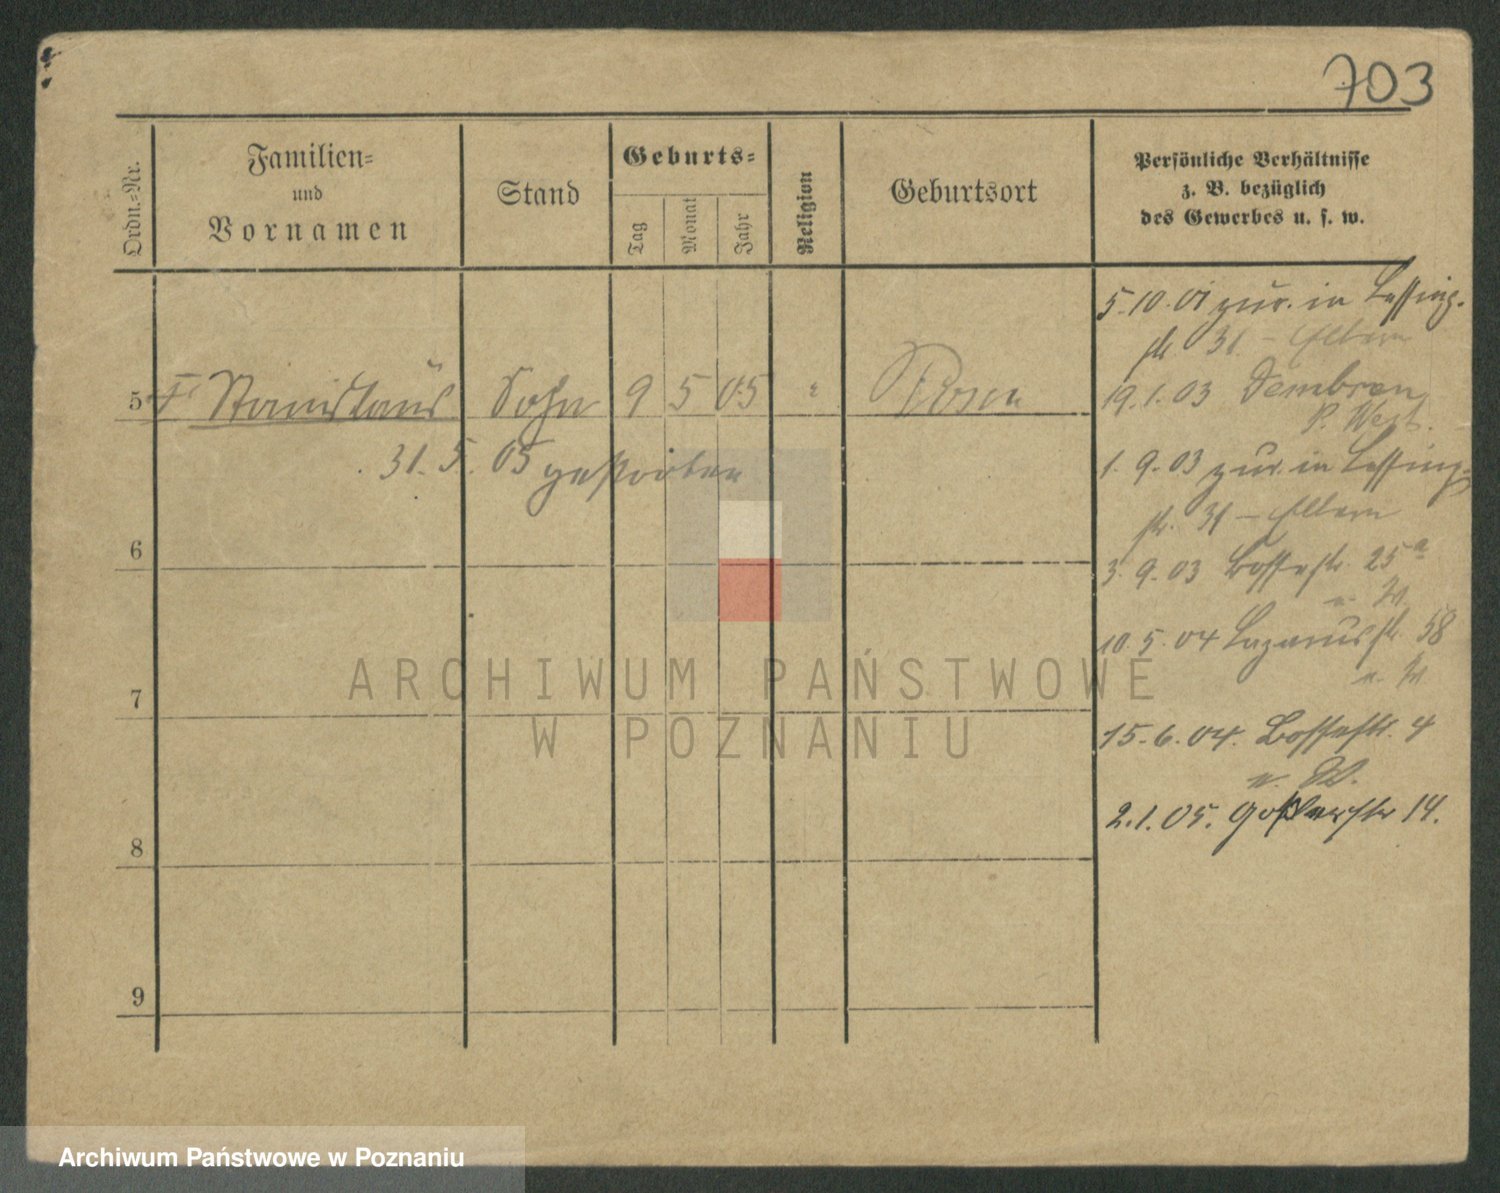 703
Ordn.=Nr.
Familien=
und
Vornamen
Stand
Geburts=
Tag
Monat
Jahr
Religion
Geburtsort
Persönliche Verhältnisse
z. B. bezüglich
des Gewerbes u. s. w.
5 † Stanislaus Sohn 9 5 05 " Posen
31. 5. 05 gestorben
6
7
8
9
5.10.01 zur. in Lessing-
str 31 – Eltern
19.1.03 Dembsen
P. West.
1. 9. 03 zur. in Lessing-
str. 31 – Eltern
3. 9. 03 Bossestr. 25a
10. 5. 04 Lazarusstr. 58
15. 6. 04. Bossestr. 4
2. 1. 05. Goßlerstr 14.
ARCHIWUM PAŃSTWOWE
W POZNANIU
Archiwum Państwowe w Poznaniu